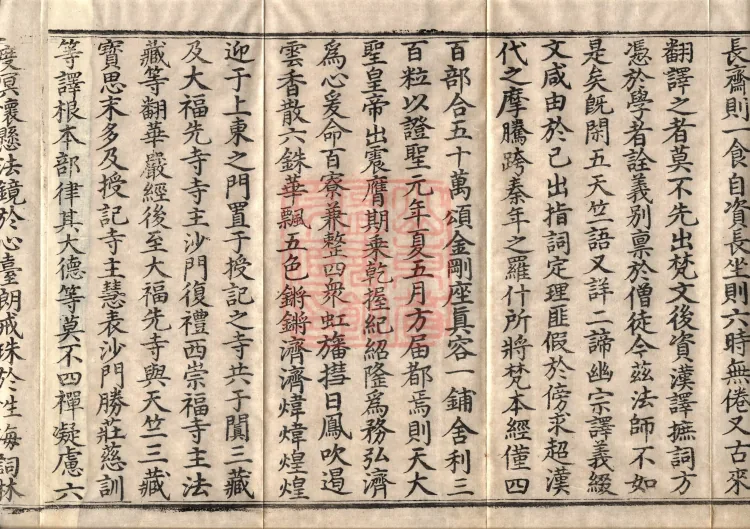 長齋則一食自資長坐則六時無倦又古來
翻譯之者莫不先出梵文後資漢譯摭詞方
憑於學者詮義別稟於僧徒今茲法師不如
是矣旣閑五天竺語又詳二諦幽宗譯義綴
文咸由於己出指詞定理匪假於傍求超漢
代之摩騰跨秦年之羅什所將梵本經僅四
百部合五十萬頌金剛座眞容一鋪舍利三
百粒以證聖元年夏五月方届都焉則天大
聖皇帝出震膺期乗乾握紀紹隆爲務弘濟
爲心爰命百寮兼整四衆虹旛撘日鳳吹遏
雲香散六銖華飄五色鏘鏘濟濟煒煒煌煌
迎于上東之門置于授記之寺共于闐三藏
及大福先寺寺主沙門復禮西崇福寺主法
藏等翻華嚴經後至大福先寺與天竺三藏
寶思末多及授記寺主慧表沙門勝莊慈訓
等譯根本部律其大德等莫不四禪凝慮六
度冥襟懸法鏡於心臺朗戒珠於性海詞林